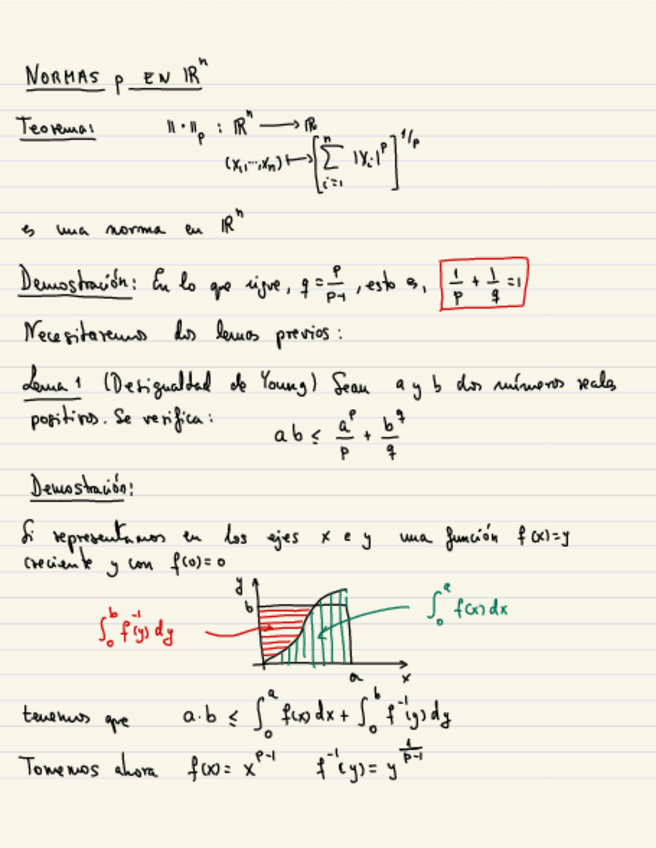 NORMAS p EN ℝⁿ
Teorema: ‖·‖ₚ : ℝⁿ ⟶ ℝ
(x₁,...,xₙ) ⟼ [∑ᵢ₌₁ⁿ |xᵢ|ᵖ]^{1/p}
es una norma en ℝⁿ
Demostración: En lo que sigue, q = p/(p-1), esto es, 1/p + 1/q = 1
Necesitaremos dos lemas previos:
Lema 1 (Desigualdad de Young) Sean a y b dos números reales
positivos. Se verifica:
ab ≤ aᵖ/p + b^q/q
Demostración:
Si representamos en los ejes x e y una función f(x)=y
creciente y con f(0)=0
y
b
∫₀ᵇ f⁻¹(y) dy
∫₀ᵃ f(x) dx
a
x
tenemos que a·b ≤ ∫₀ᵃ f(x) dx + ∫₀ᵇ f⁻¹(y) dy
Tomemos ahora f(x) = x^{p-1} f⁻¹(y) = y^{1/(p-1)}